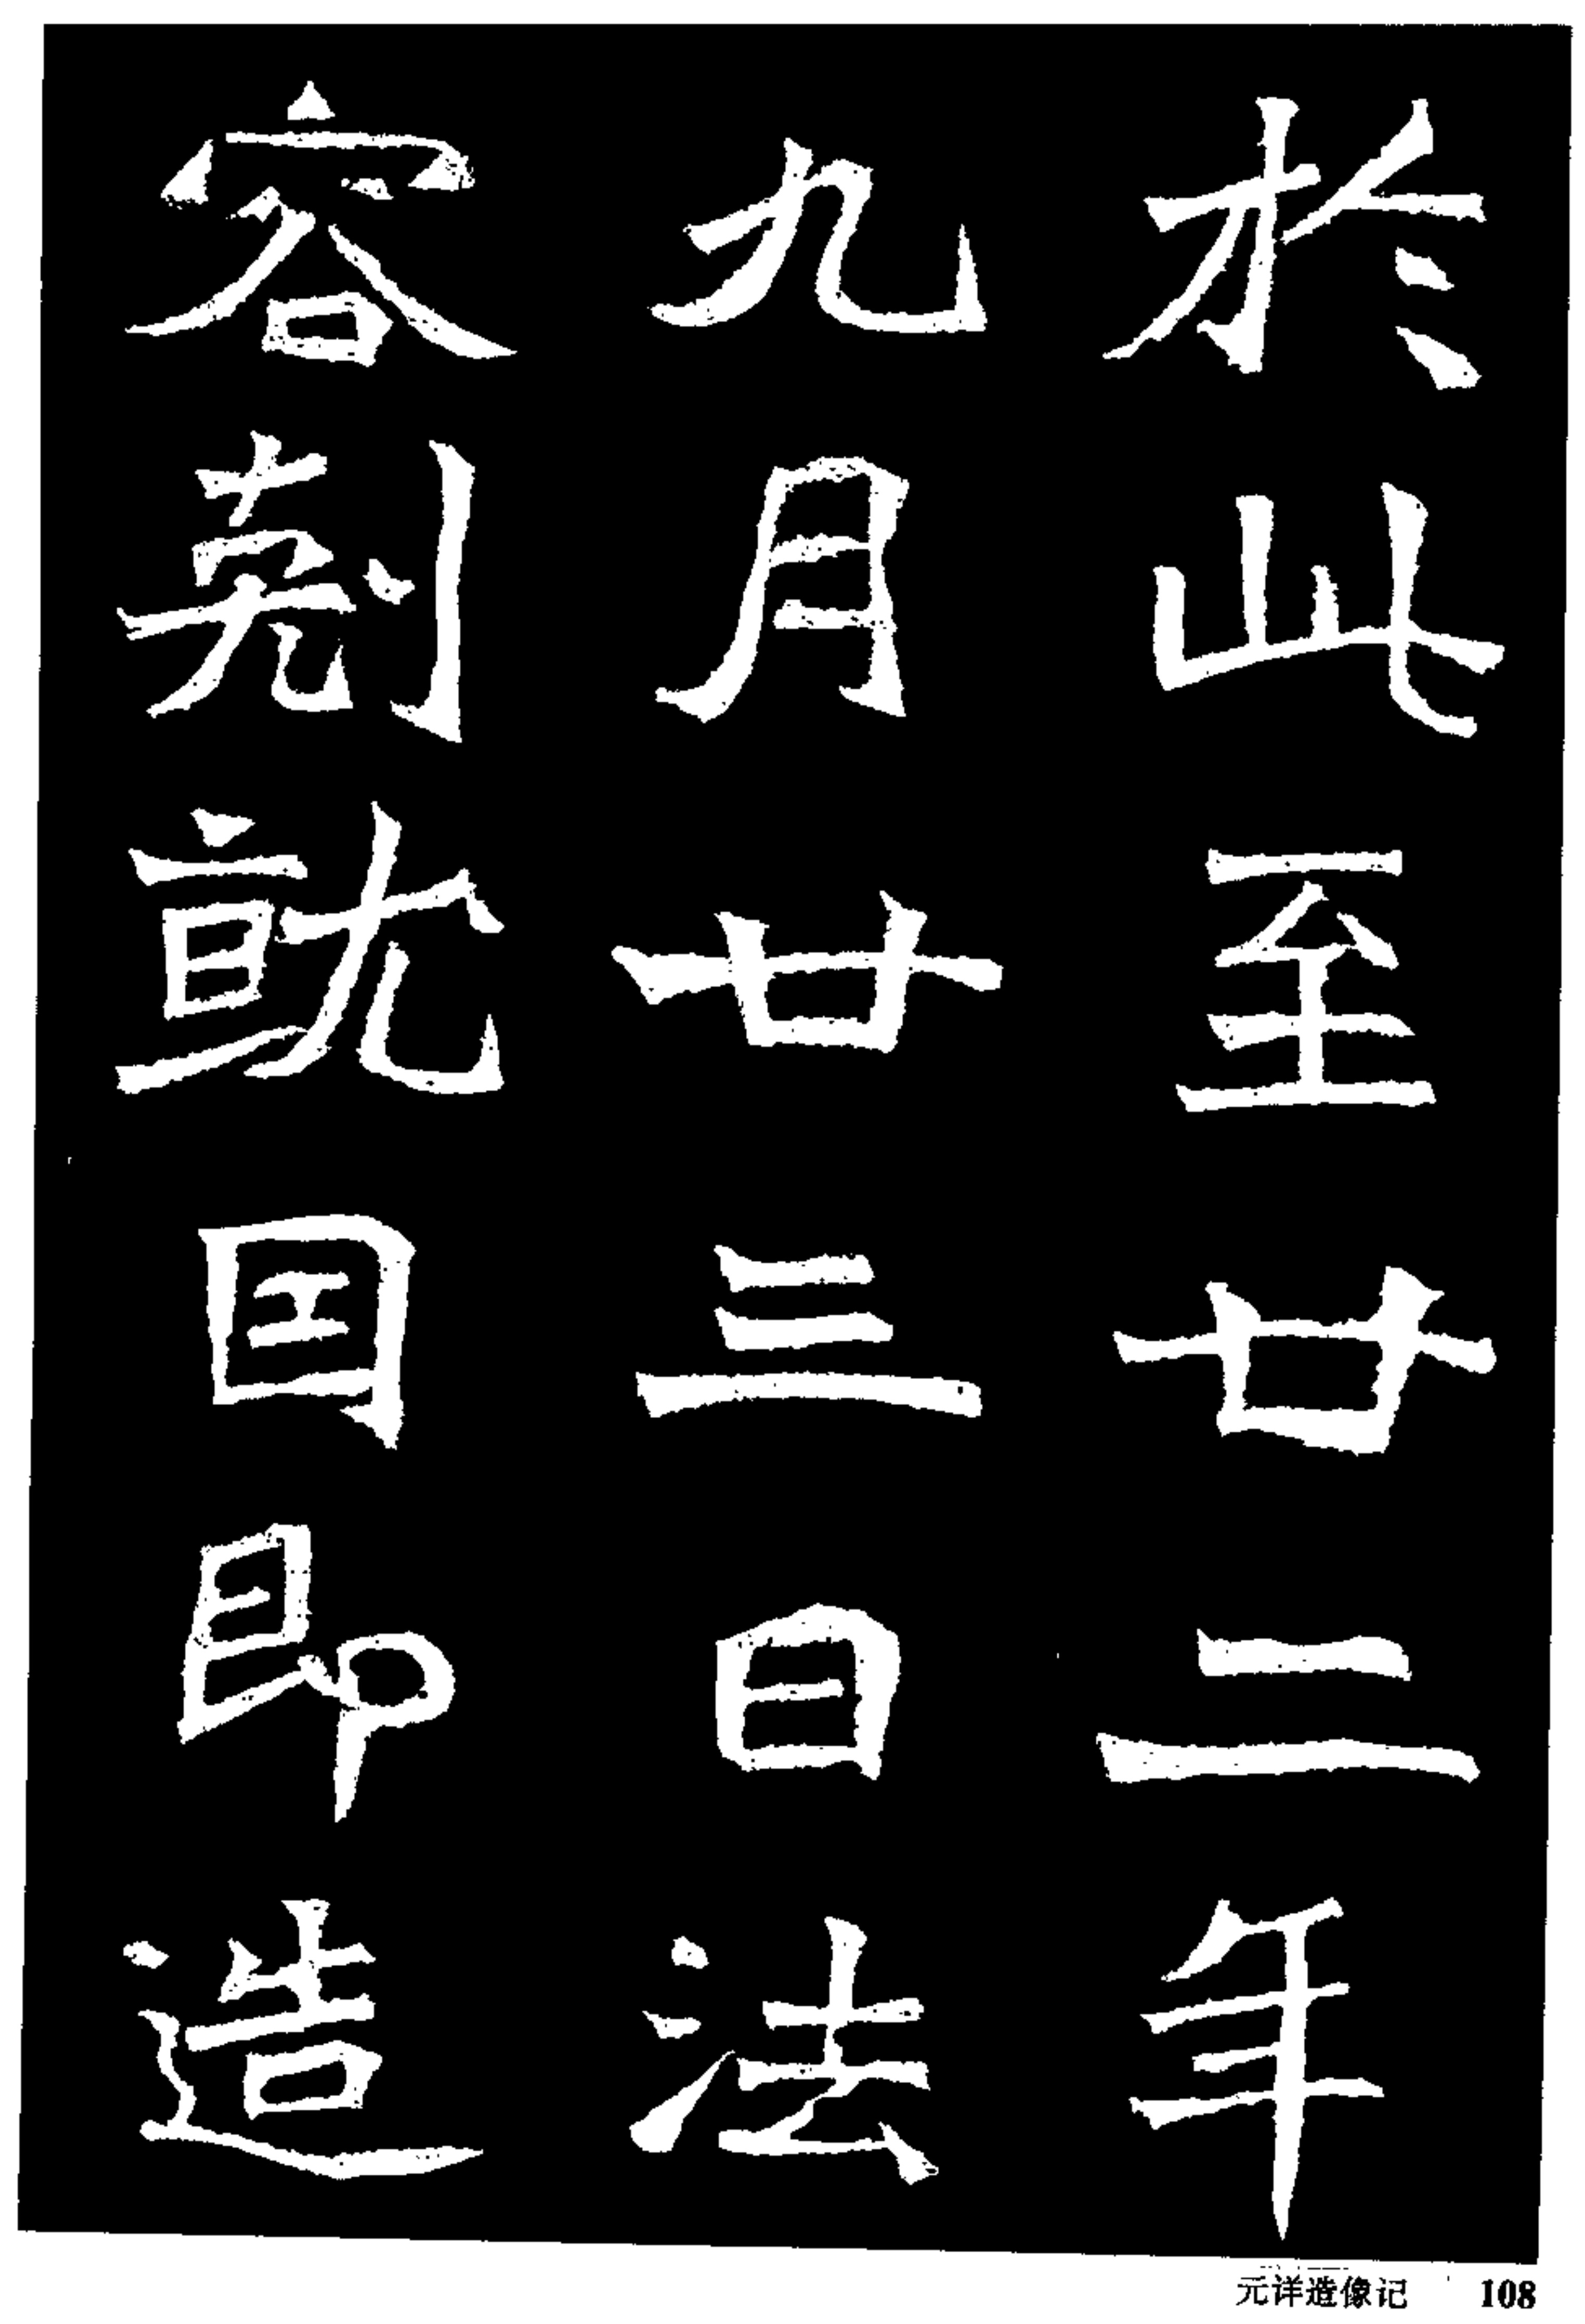 於此至廿二年
九月廿三日法
容剋就囙即造
元详造像记 108